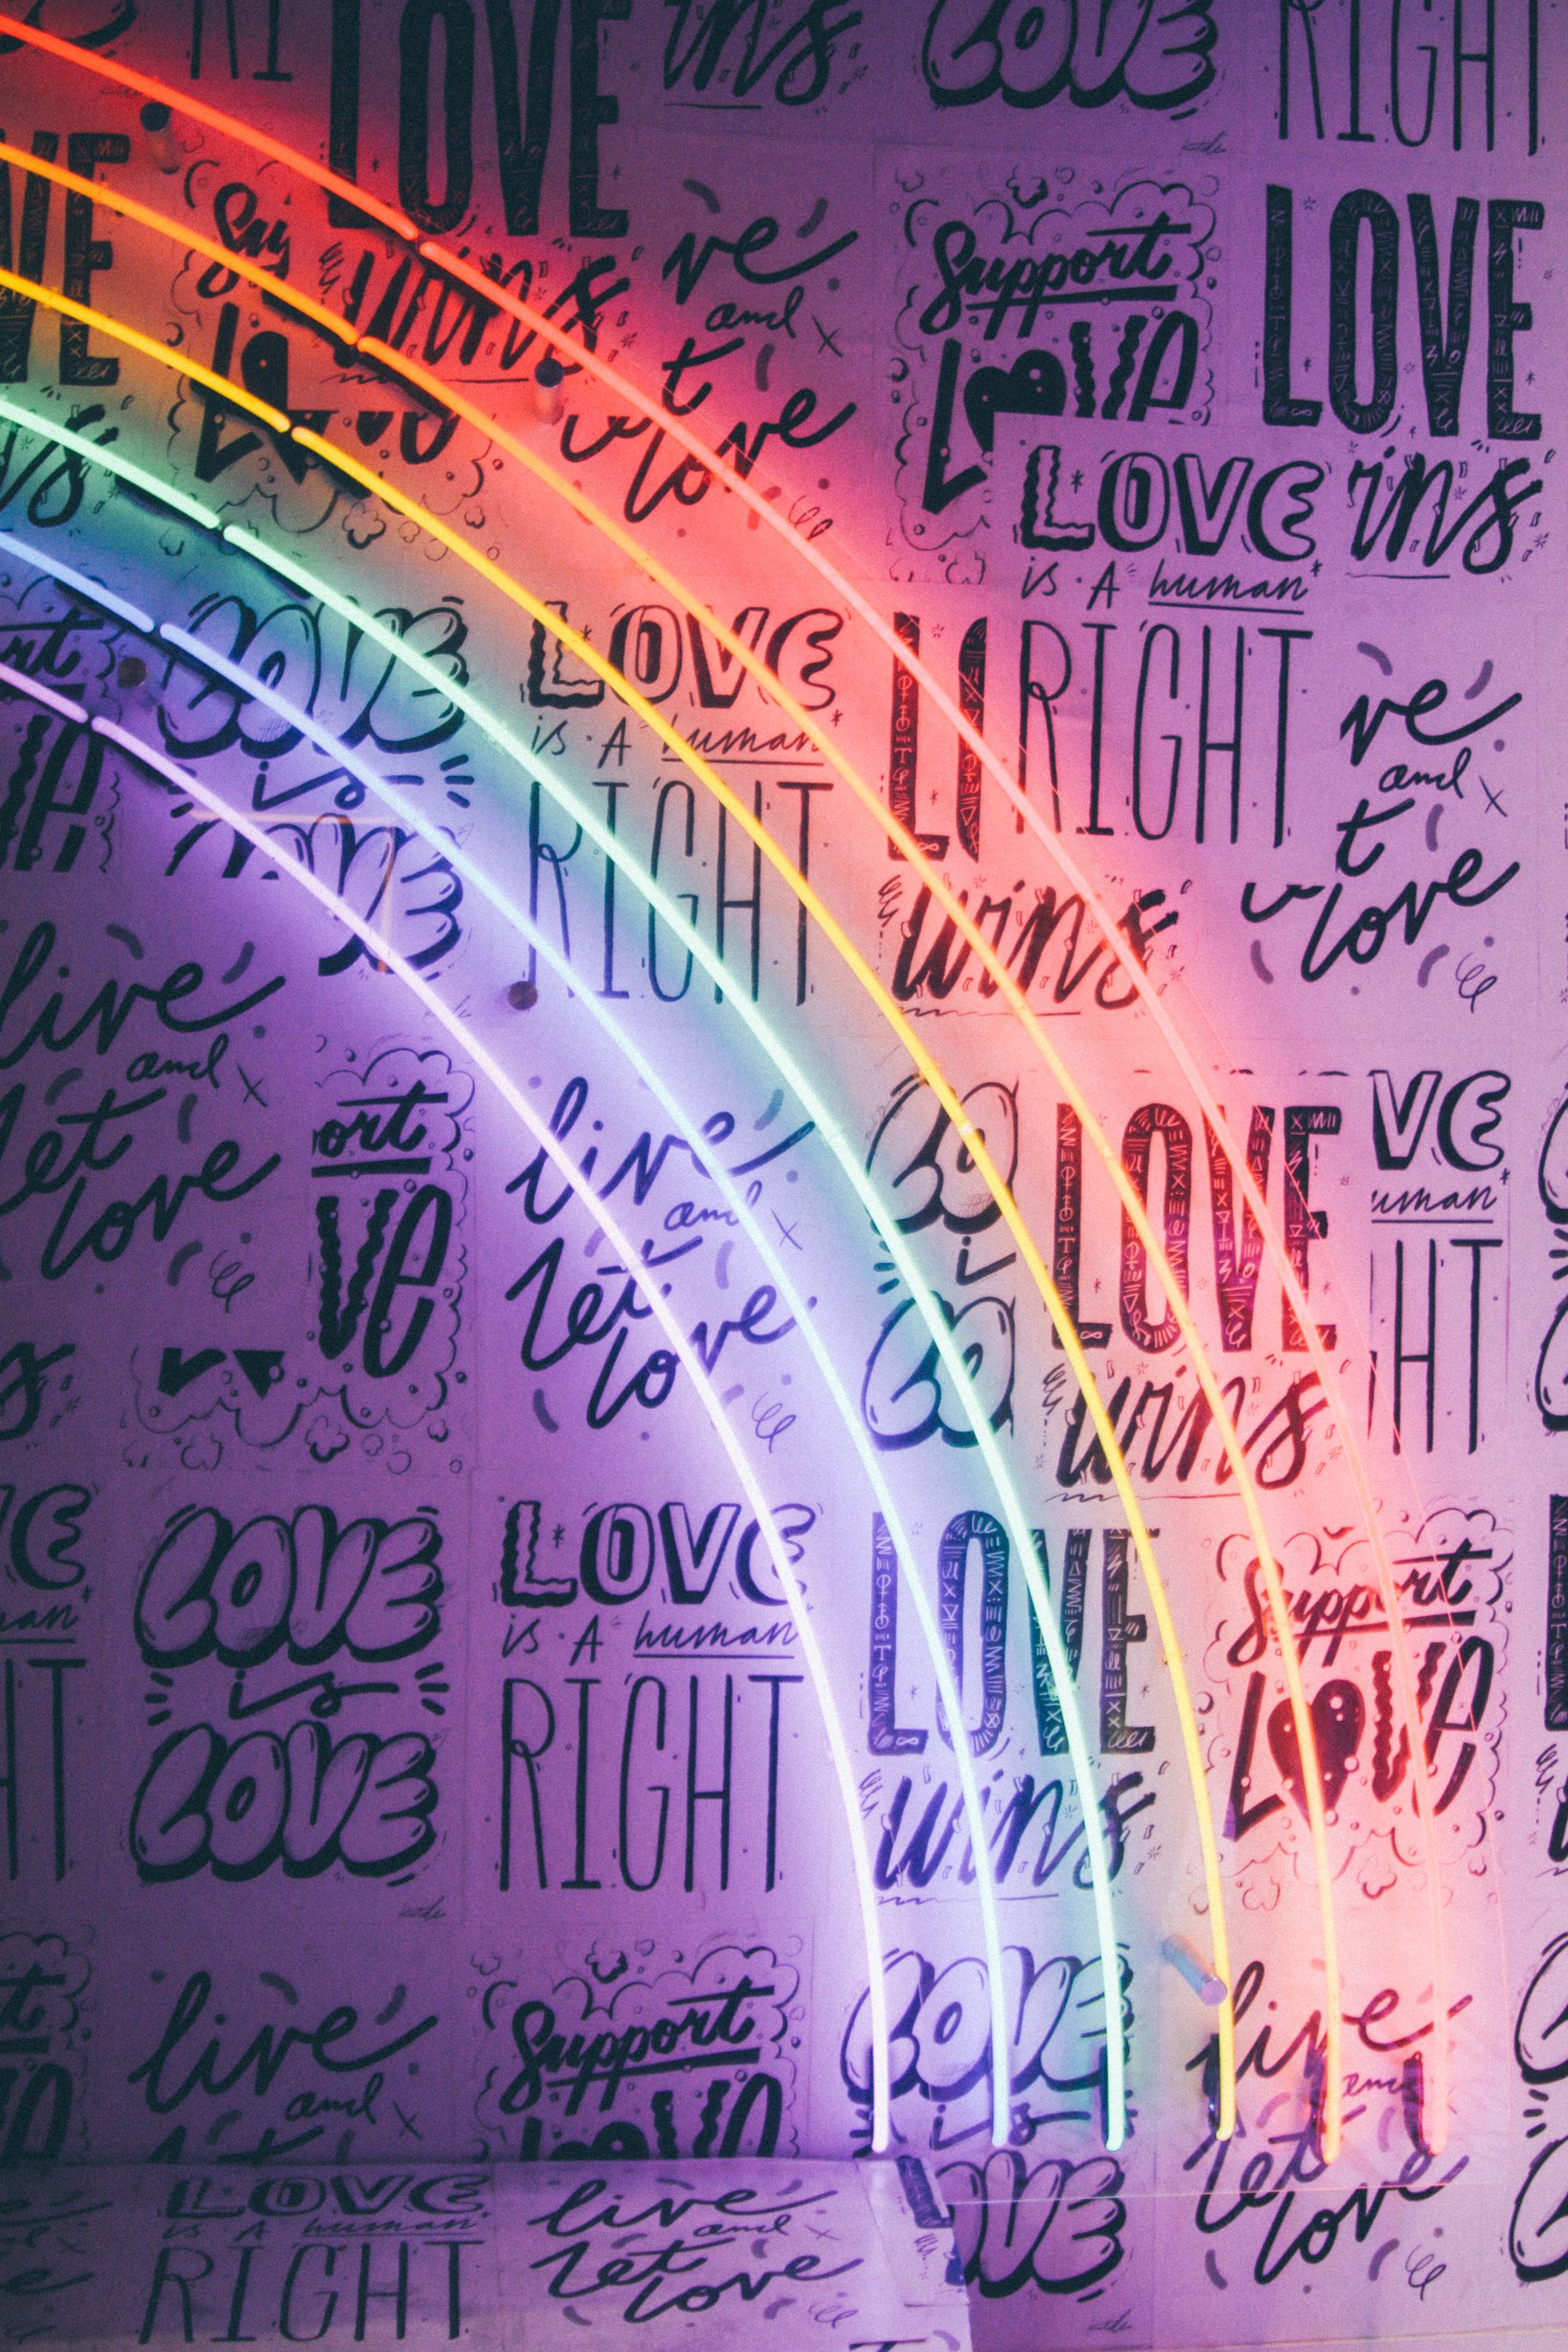 LOVE
ins
LOVE
RIGHT
LOVE
wins
ve
and
t
love
Support
LOVE
LOVE
ins
LOVE
is A human
RIGHT
LOVE
is
LOVE
is A human
RIGHT
wins
ve
and
t
love
live
and
let
love
ort
live
and
let
love
LOVE
wins
VE
uman
HT
LOVE
is
LOVE
LOVE
is A human
RIGHT
LOVE
wins
Support
LOVE
live
and
Support
LOVE
is
LOVE
live
and
let
love
LOVE
is A human
RIGHT
live
and
let
love